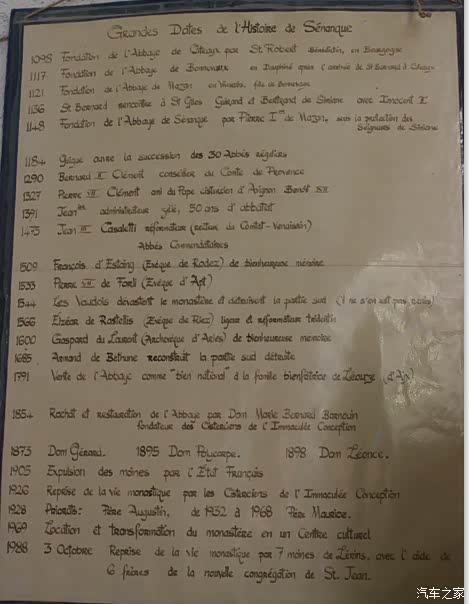 Grandes Dates de l'Histoire de Sénanque
1098 Fondation de l'Abbaye de Citeaux par St Robert Bénédictin, en Bourgogne
1117 Fondation de l'Abbaye de Bonnevaux en Dauphiné après l'arrivée de St Bernard à Citeaux
1121 Fondation de l'Abbaye de Mazan en Vivarais, fille de Bonnevaux
1136 St Bernard rencontre à St Gilles Guirand et Bertrand de Simiane avec Innocent II
1148 Fondation de l'Abbaye de Sénanque par Pierre Ier de Mazan, sous la protection des
Seigneurs de Simiane
1184 ouvre la succession des 30 Abbés réguliers
1290 Bernard II Clément conseiller du Comte de Provence
1327 Pierre VII Clément ami du Pape cistercien d'Avignon Benoit XII
1391 Jean administrateur zélé, 50 ans d'abbatiat
1475 Jean III Casaletti réformateur (recteur du Comtat-Venaissin)
Abbés Commendataires
1509 François d'Estaing (Evêque de Rodez) de bienheureuse mémoire
1533 Pierre VII de Forli (Evêque d'Apt)
1544 Les Vaudois dévastent le monastère et détruisent la partie sud (il ne s'en est pas remis)
1566 Elzéar de Rastellis (Evêque de Riez) ligueur et réformateur tridentin
1600 Gaspard du Laurent (Archevêque d'Arles) de bienheureuse mémoire
1685 Armand de Bethune reconstruit la partie sud détruite
1791 Vente de l'Abbaye comme "bien national" à la famille bienfaitrice de Léouze (d'Apt)
1854 Rachat et restauration de l'Abbaye par Dom Marie Bernard Barnouin
fondateur des Cisterciens de l'Immaculée Conception
1873 Dom Gérard. 1895 Dom Polycarpe. 1898 Dom Léonce.
1905 Expulsion des moines par l'Etat Français
1926 Reprise de la vie monastique par les Cisterciens de l'Immaculée Conception
1928 Prieurs: Père Augustin, de 1932 à 1968 Père Maurice.
1969 Location et transformation du monastère en un Centre culturel
1988 3 Octobre Reprise de la vie monastique par 7 moines de Lérins, avec l'aide de
6 frères de la nouvelle congrégation de St. Jean.
汽车之家